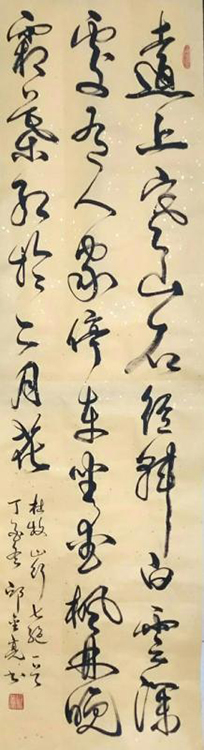 遠上寒山石徑斜白雲深
處有人家停車坐愛楓林晚
霜葉紅於二月花
杜牧山行七絕一首
丁 邱 亮书